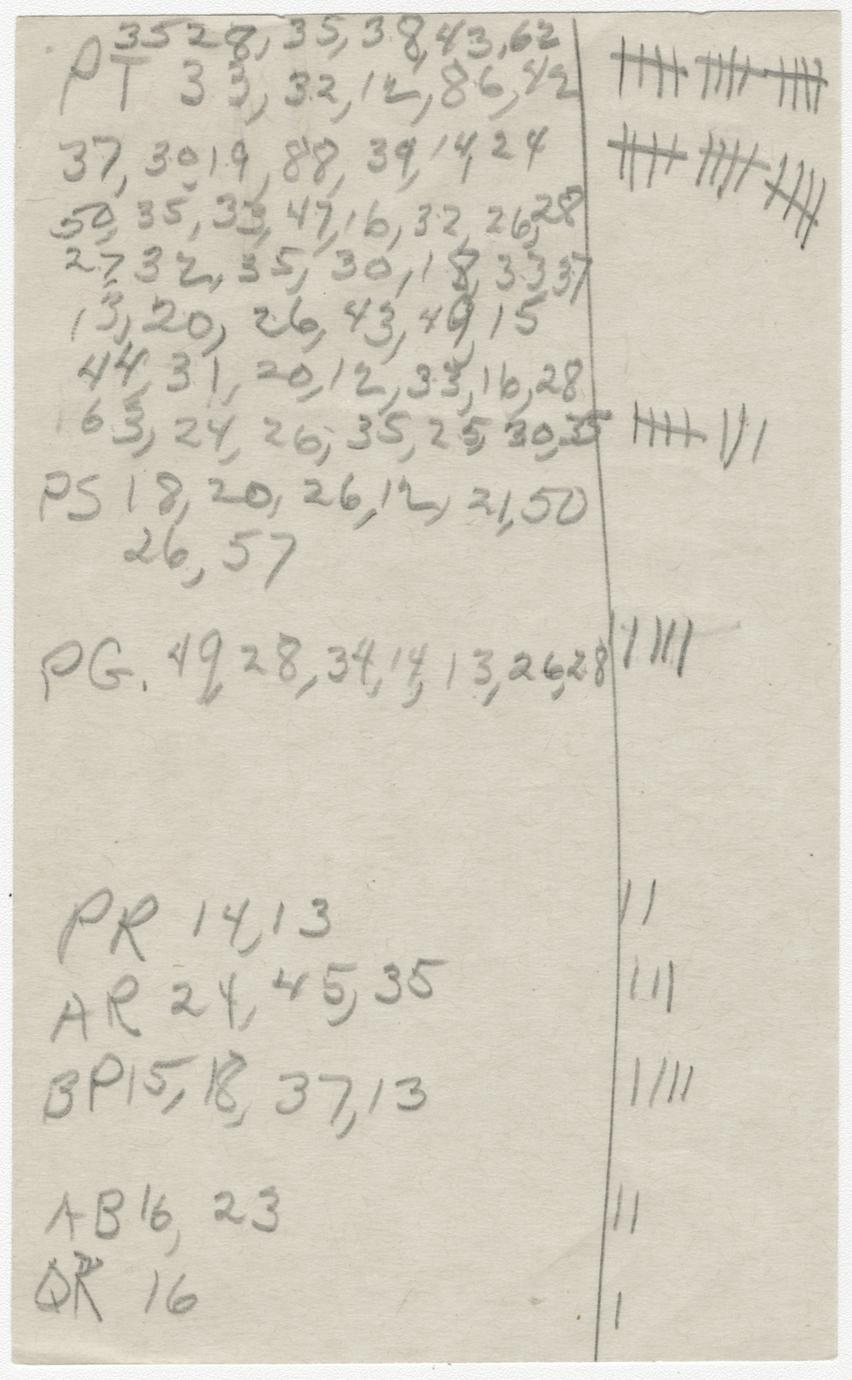 3528, 35, 38, 43, 62
PT 33, 32, 12, 86, 42
37, 3019, 88, 39, 14, 24
50, 35, 33, 47, 16, 32, 26, 28
27, 32, 35, 30, 18, 33 37
13, 20, 26, 43, 49, 15
44, 31, 20, 12, 33, 16, 28
163, 24, 26, 35, 25, 30, 35
PS 18, 20, 26, 12, 21, 50
26, 57
PG. 49, 28, 34, 14, 13, 26, 28
PR 14, 13
AR 24, 45, 35
BP 15, 18, 37, 13
AB 16, 23
QR 16